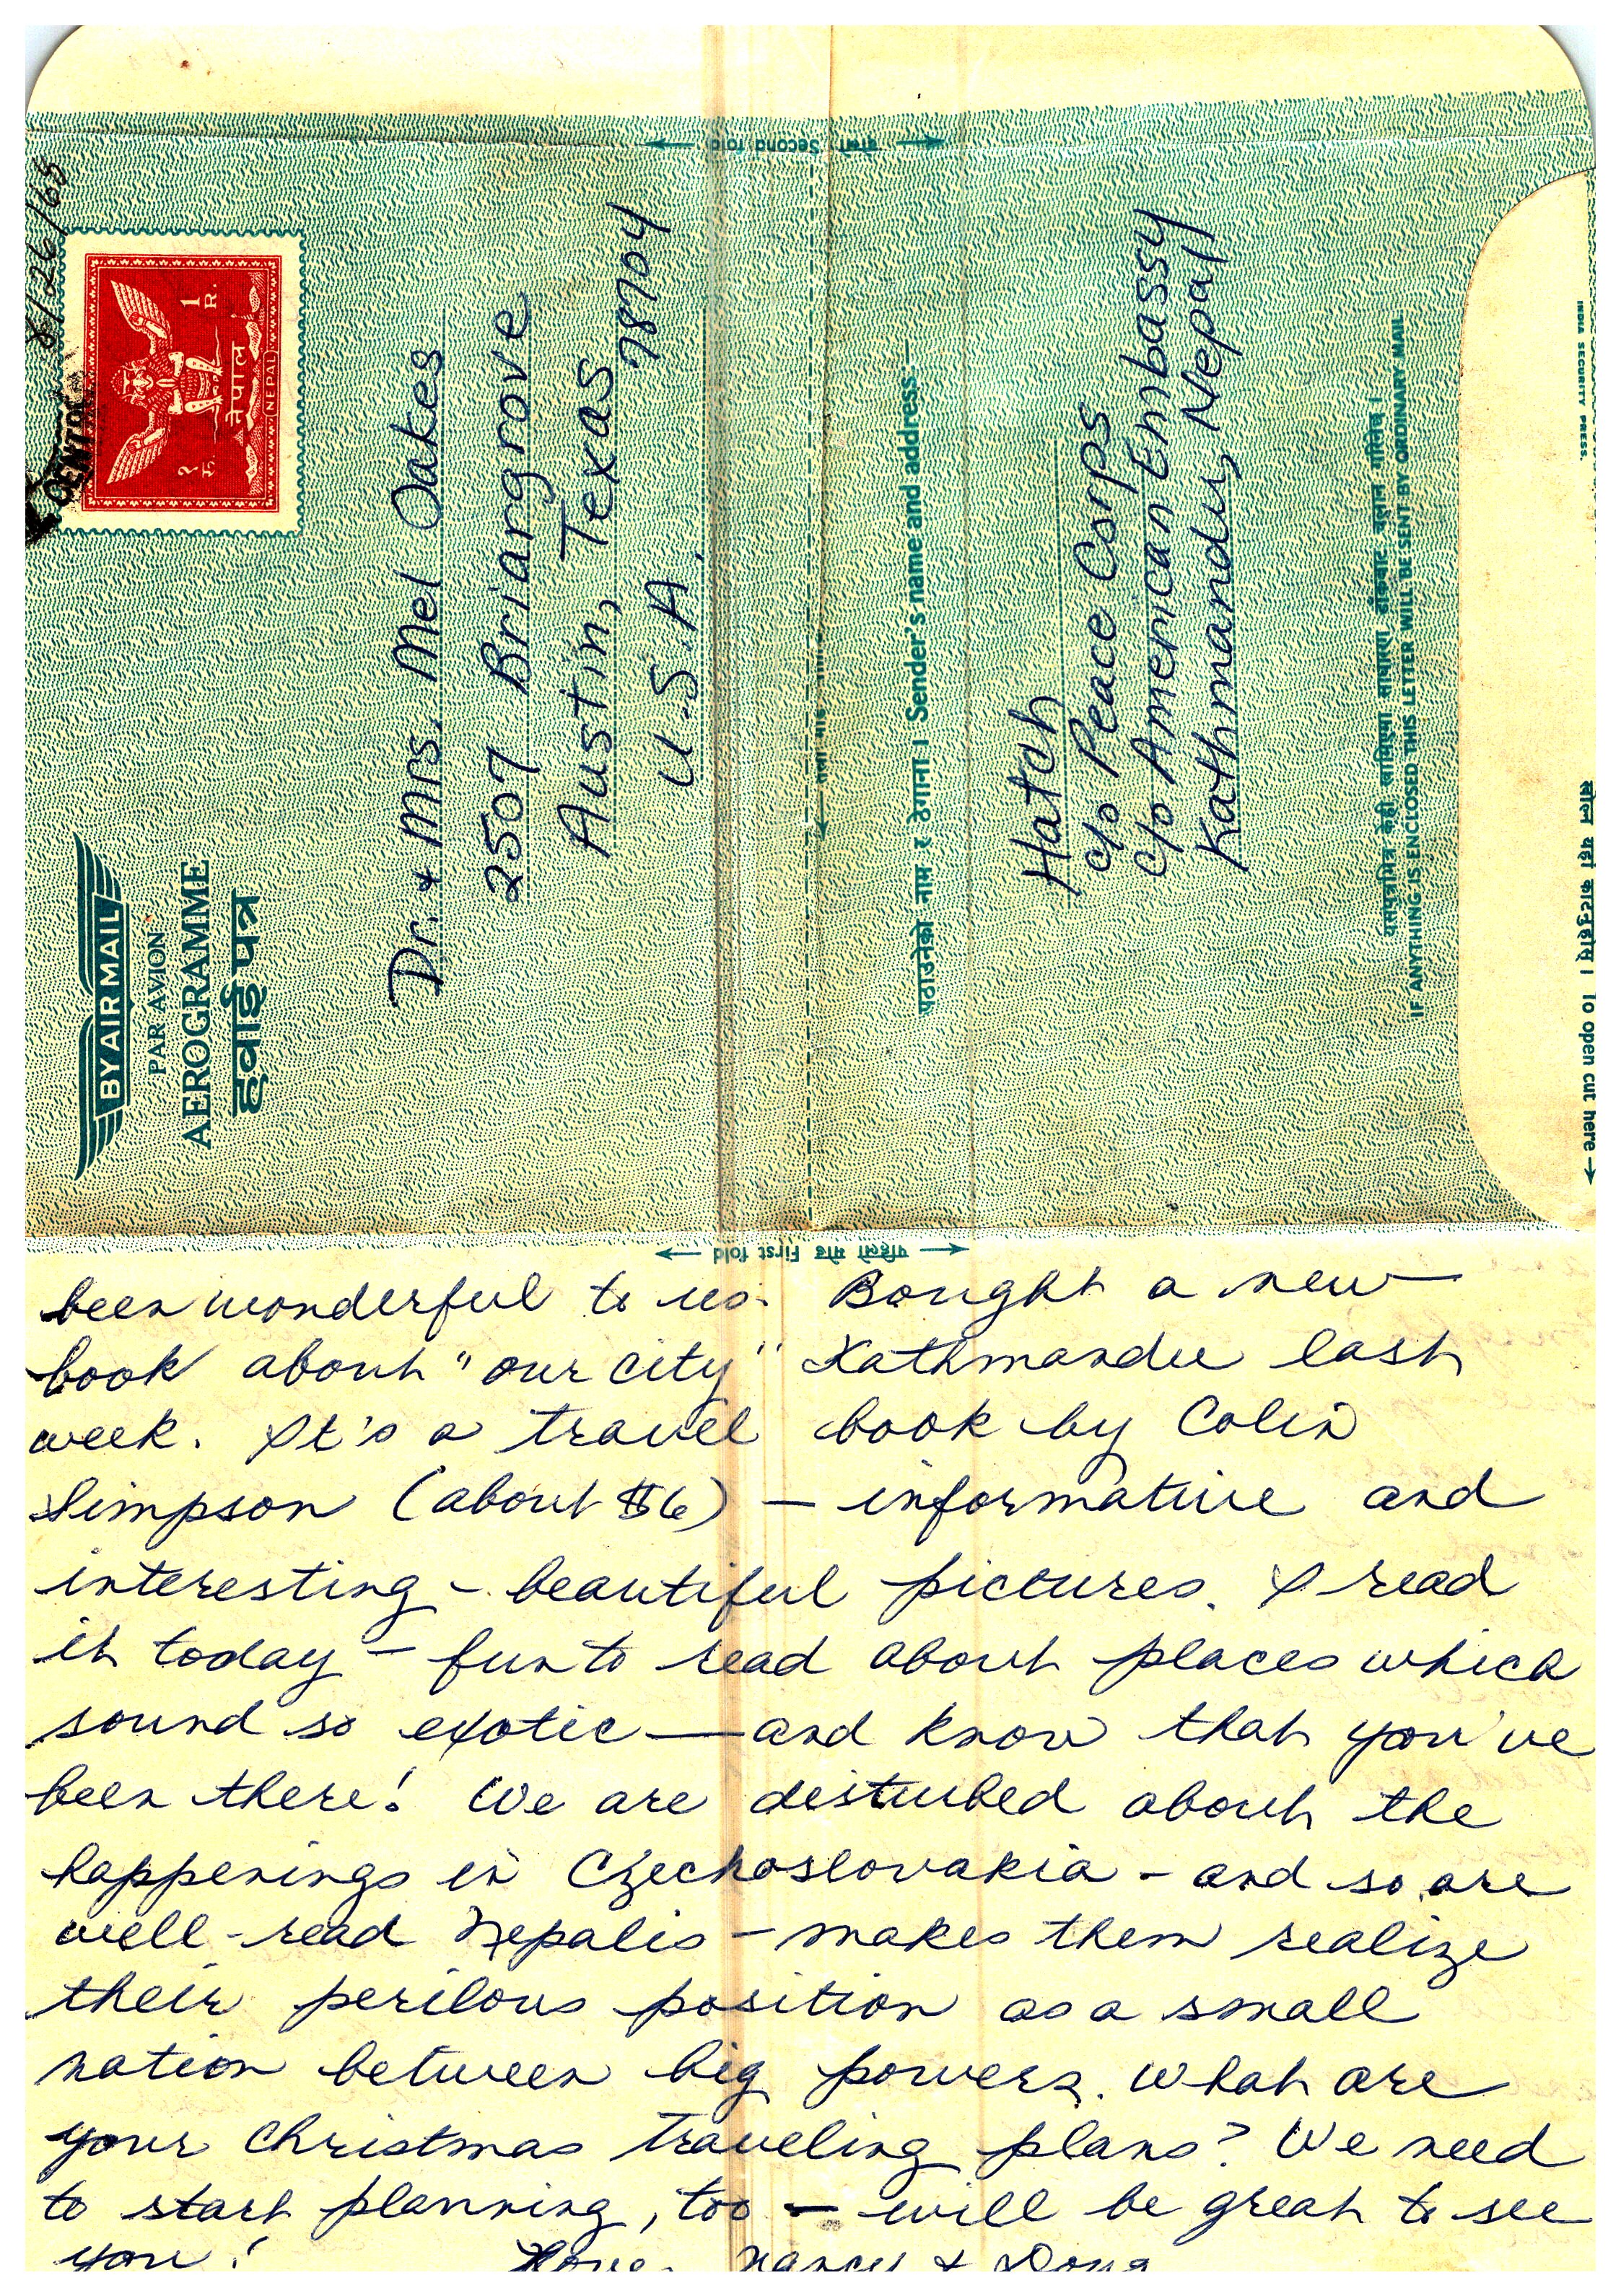 8/26/68
CENTRAL
१ रु.
1 R.
नेपाल
(NEPAL)
BY AIR MAIL
PAR AVION
AEROGRAMME
हवाई पत्र
Dr. & Mrs. Mel Oakes
2507 Briargrove
Austin, Texas
78704
U.S.A.
दोस्रो मोड Second fold
पठाउनेको नाम र ठेगाना । Sender's name and address:—
Hatch
c/o Peace Corps
c/o American Embassy
Kathmandu, Nepal
यसपत्रभित्र केही राखिएमा साधारण डाँकबाट चलान गरिनेछ ।
IF ANYTHING IS ENCLOSED THIS LETTER WILL BE SENT BY ORDINARY MAIL
INDIA SECURITY PRESS.
खोल्न यहाँ काट्नुहोस् । To open cut here →
पहिलो मोड First fold
been wonderful to us. Bought a new
book about "our city" Kathmandu last
week. It's a travel book by Colin
Simpson (about $6) – informative and
interesting – beautiful pictures. I read
it today – fun to read about places which
sound so exotic — and know that you've
been there! We are disturbed about the
happenings in Czechoslovakia – and so are
well-read Nepalis – makes them realize
their perilous position as a small
nation between big powers. What are
your Christmas traveling plans? We need
to start planning, too — will be great to see
you! Love, Nancy & Doug